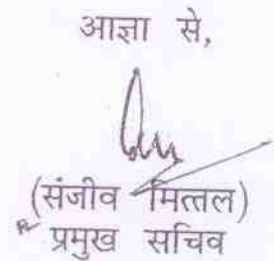 आज्ञा से,
(संजीव मित्तल)
प्रमुख सचिव